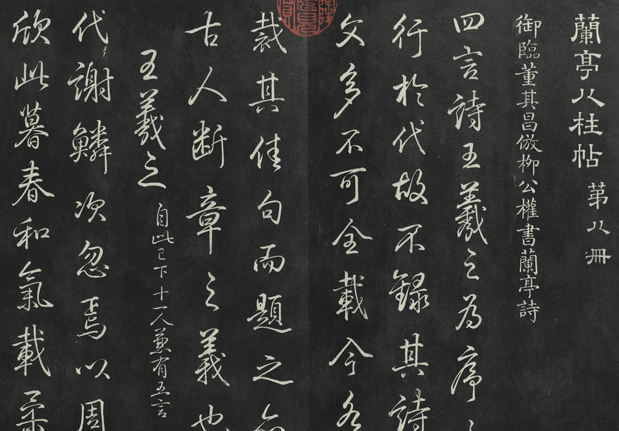 蘭亭八柱帖 第八冊
御臨董其昌倣柳公權書蘭亭詩
四言詩王羲之為序
行於代故不錄其詩
文多不可全載今各
裁其佳句而題之
古人断章之義也
王羲之 自此已下十一人兼有五言
代謝鱗次忽焉以周
欣此暮春和氣載柔